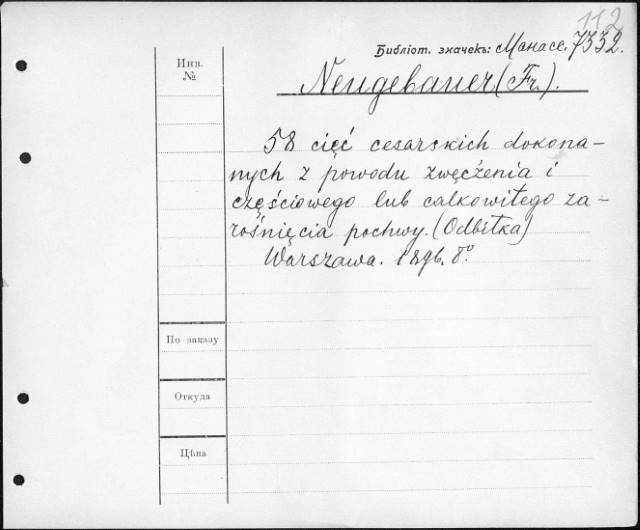 112
Библіот. значекъ: Манасе. 7332.
Инв.
№
Neugebauer (Fr.).
58 cięć cesarskich dokona-
nych z powodu zwężenia i
częściowego lub całkowitego za-
rośnięcia pochwy. (Odbitka)
Warszawa. 1896. 8°.
По заказу
Откуда
Цѣна